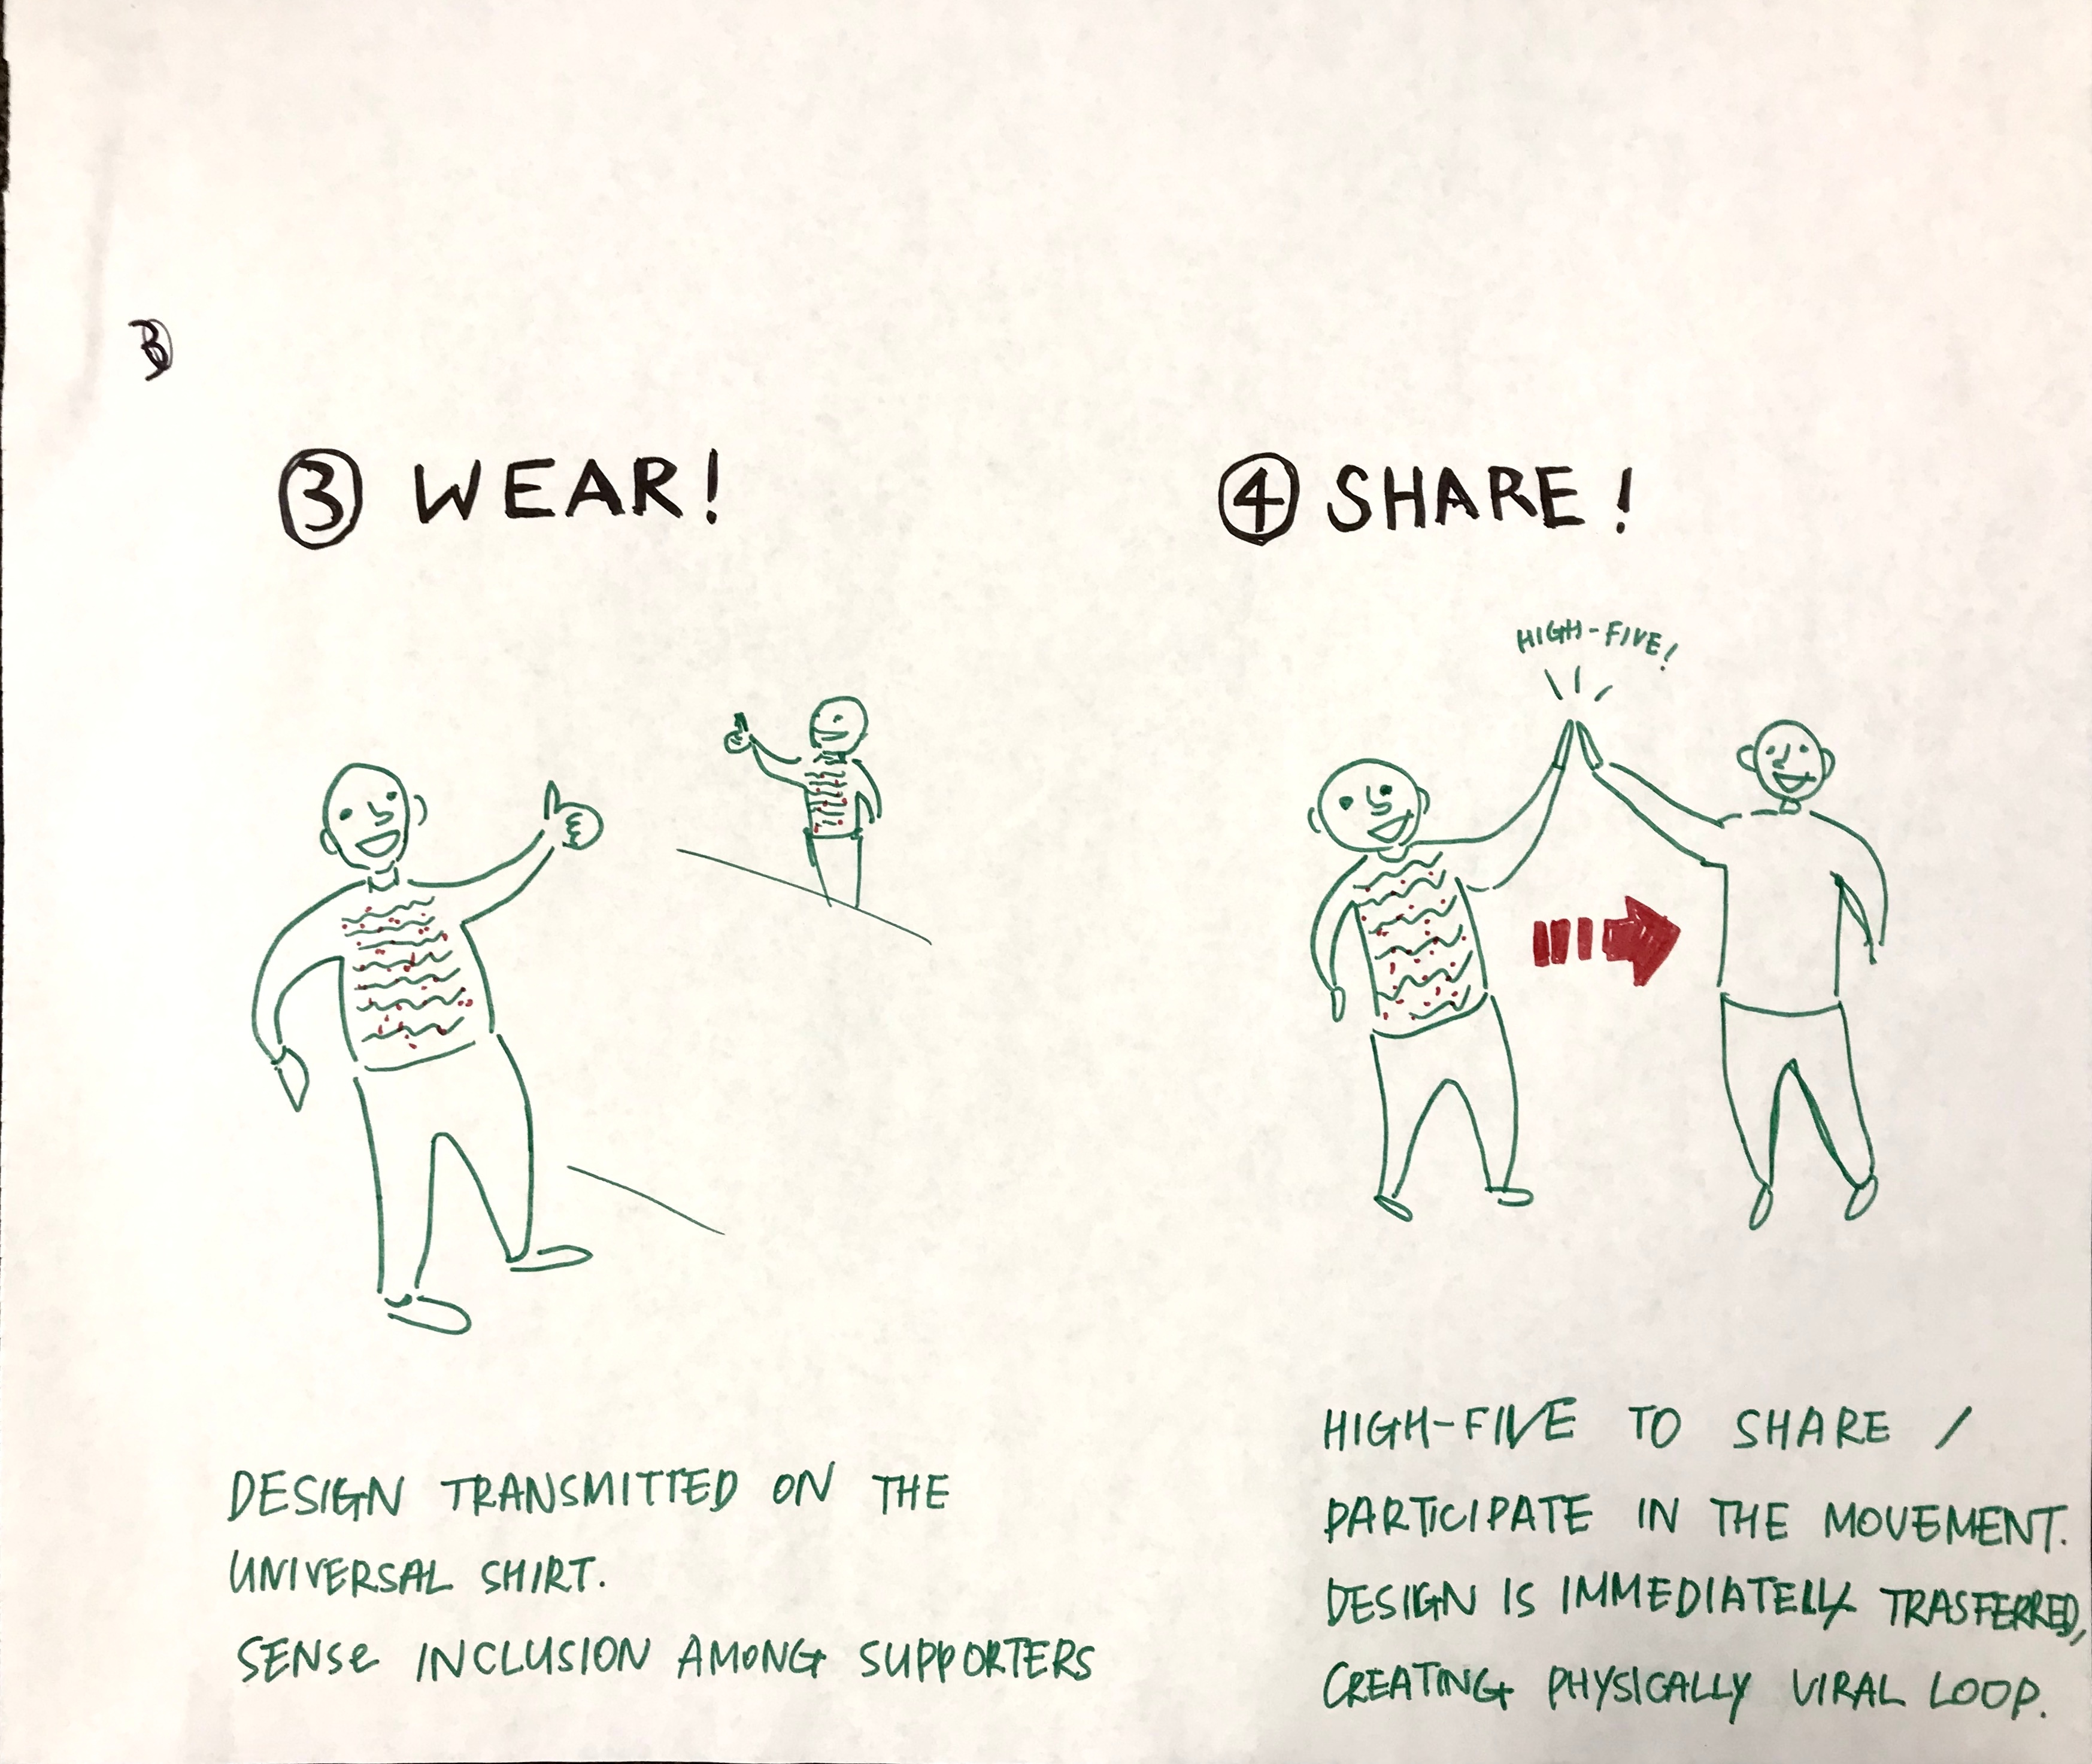 B
③ WEAR!
④ SHARE!
HIGH-FIVE!
DESIGN TRANSMITTED ON THE
UNIVERSAL SHIRT.
SENSe INCLUSION AMONG SUPPORTERS
HIGH-FIVE TO SHARE /
PARTICIPATE IN THE MOVEMENT.
DESIGN IS IMMEDIATELLY TRASFERRED,
CREATING PHYSICALLY VIRAL LOOP.